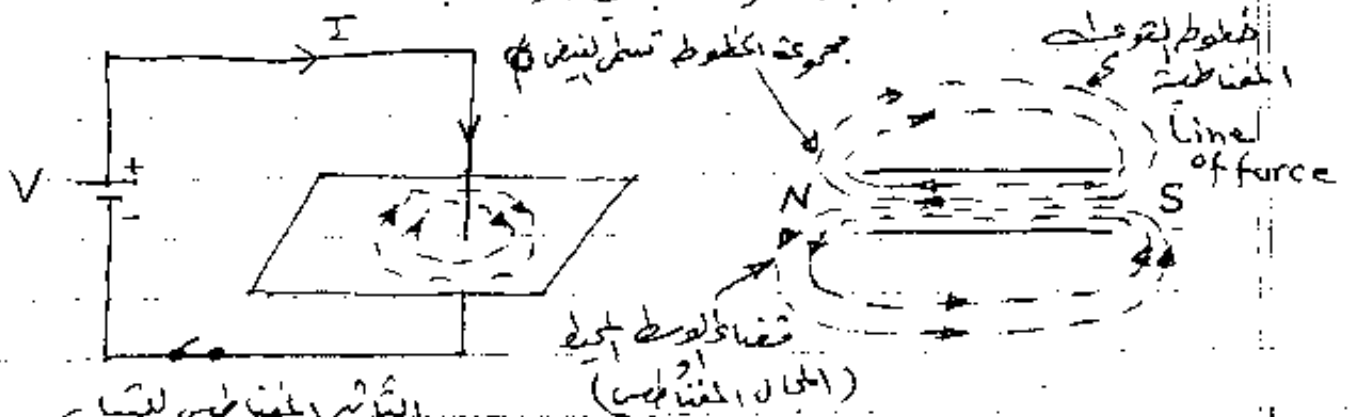 I
V
+
-
مجموعة الخطوط تسمى الفيض φ
خطوط القوة
المغناطيسية
Line
of force
N
S
فضاء الوسط المحيط
او
(المجال المغناطيسي)
التأثير المغناطيسي للتيار